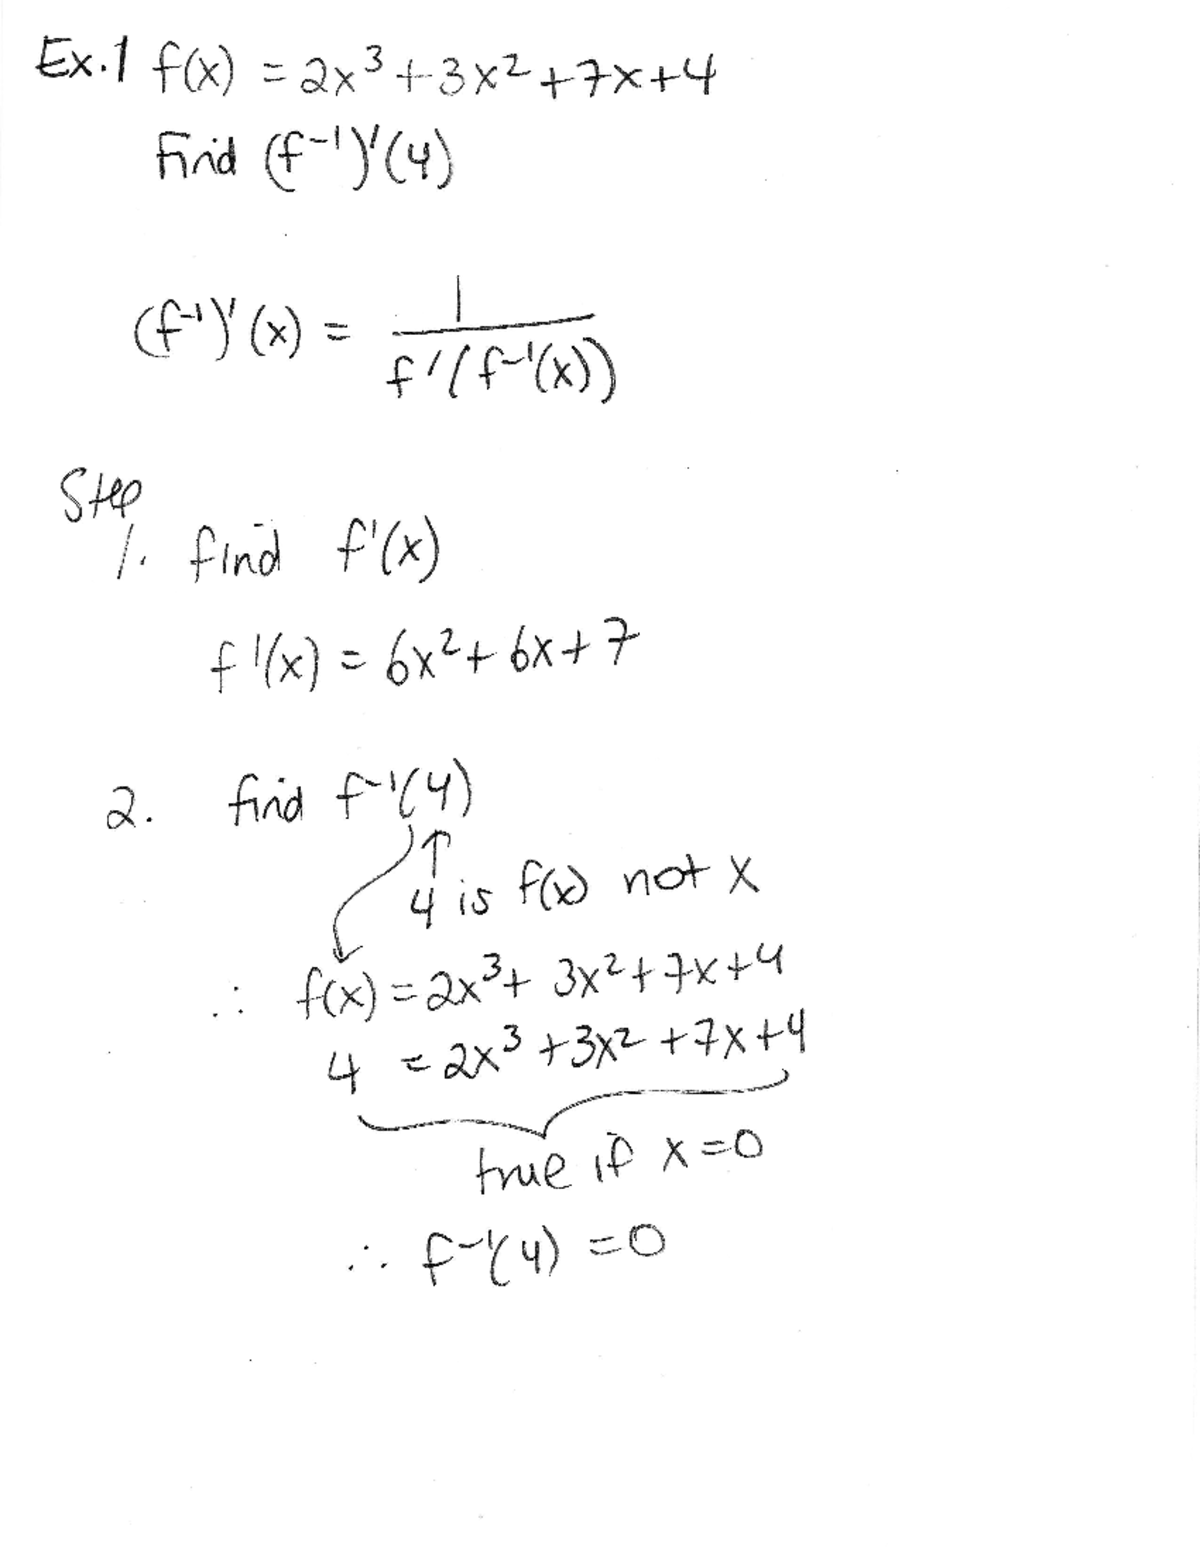 Ex.1 f(x) = 2x³+3x²+7x+4
Find (f⁻¹)'(4)
(f⁻¹)'(x) = 1 / f'(f⁻¹(x))
Step
1. find f'(x)
f'(x) = 6x²+6x+7
2. find f⁻¹(4)
↑
4 is f(x) not x
∴ f(x) = 2x³+3x²+7x+4
4 = 2x³+3x²+7x+4
true if x=0
∴ f⁻¹(4) = 0